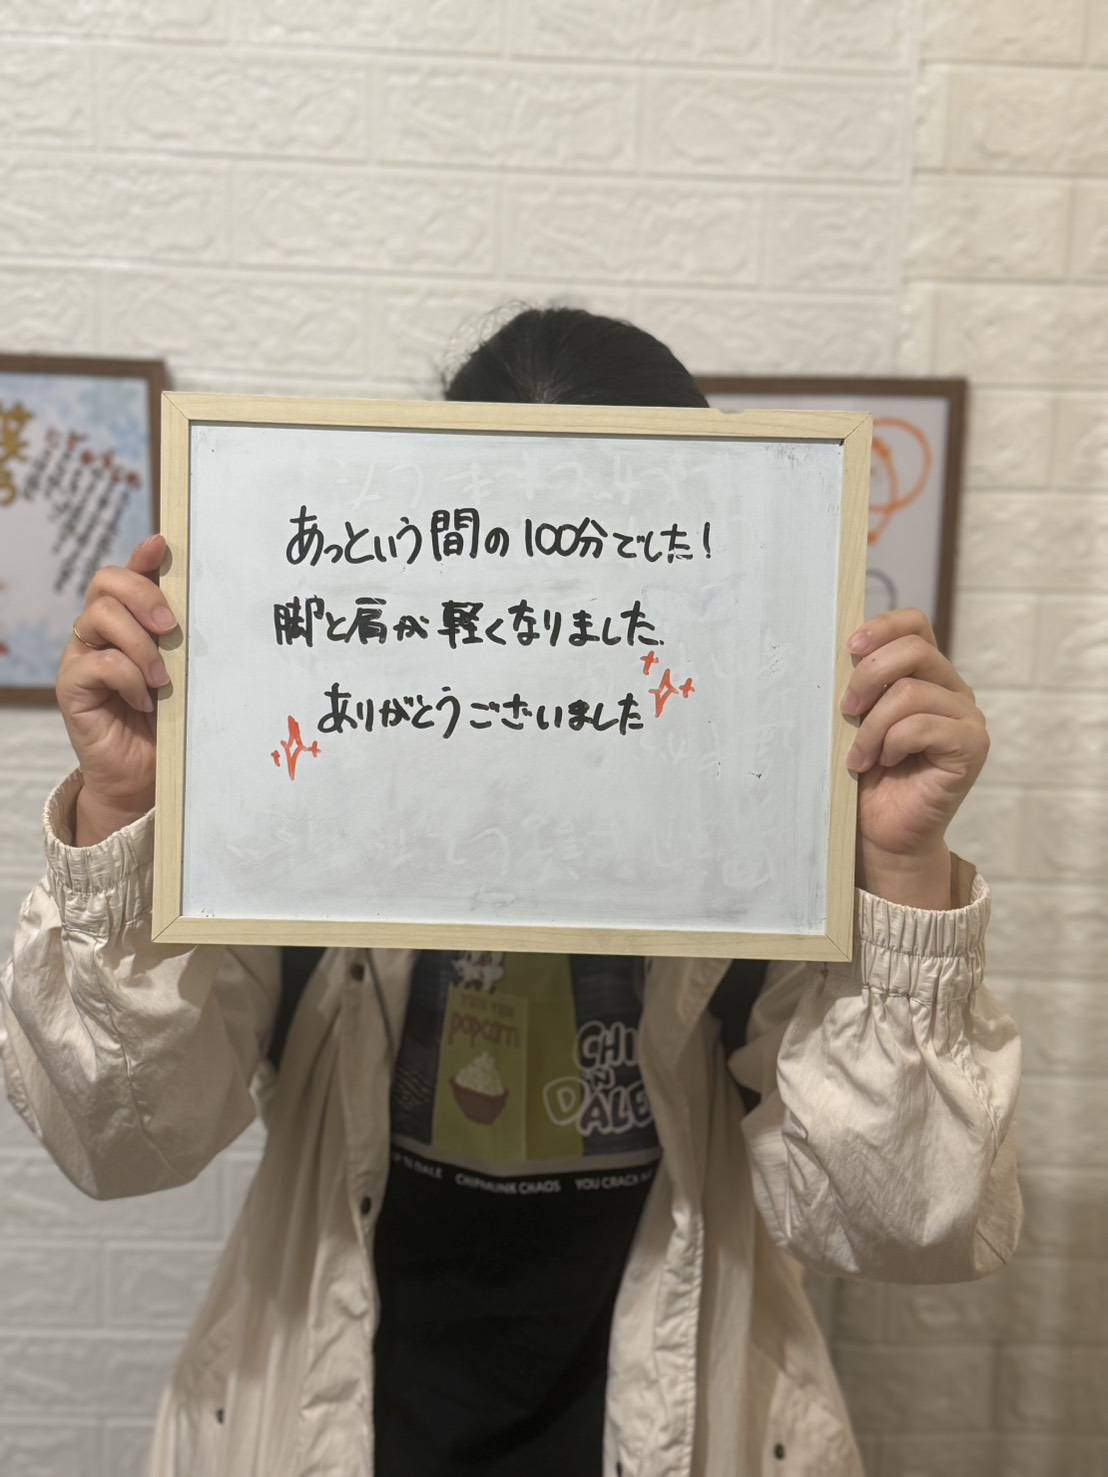 あっという間の100分でした!
脚と肩が軽くなりました.
ありがとうございました
popcorn
CHI
N
DALE
CHIPMUNK CHAOS YOU CRACK